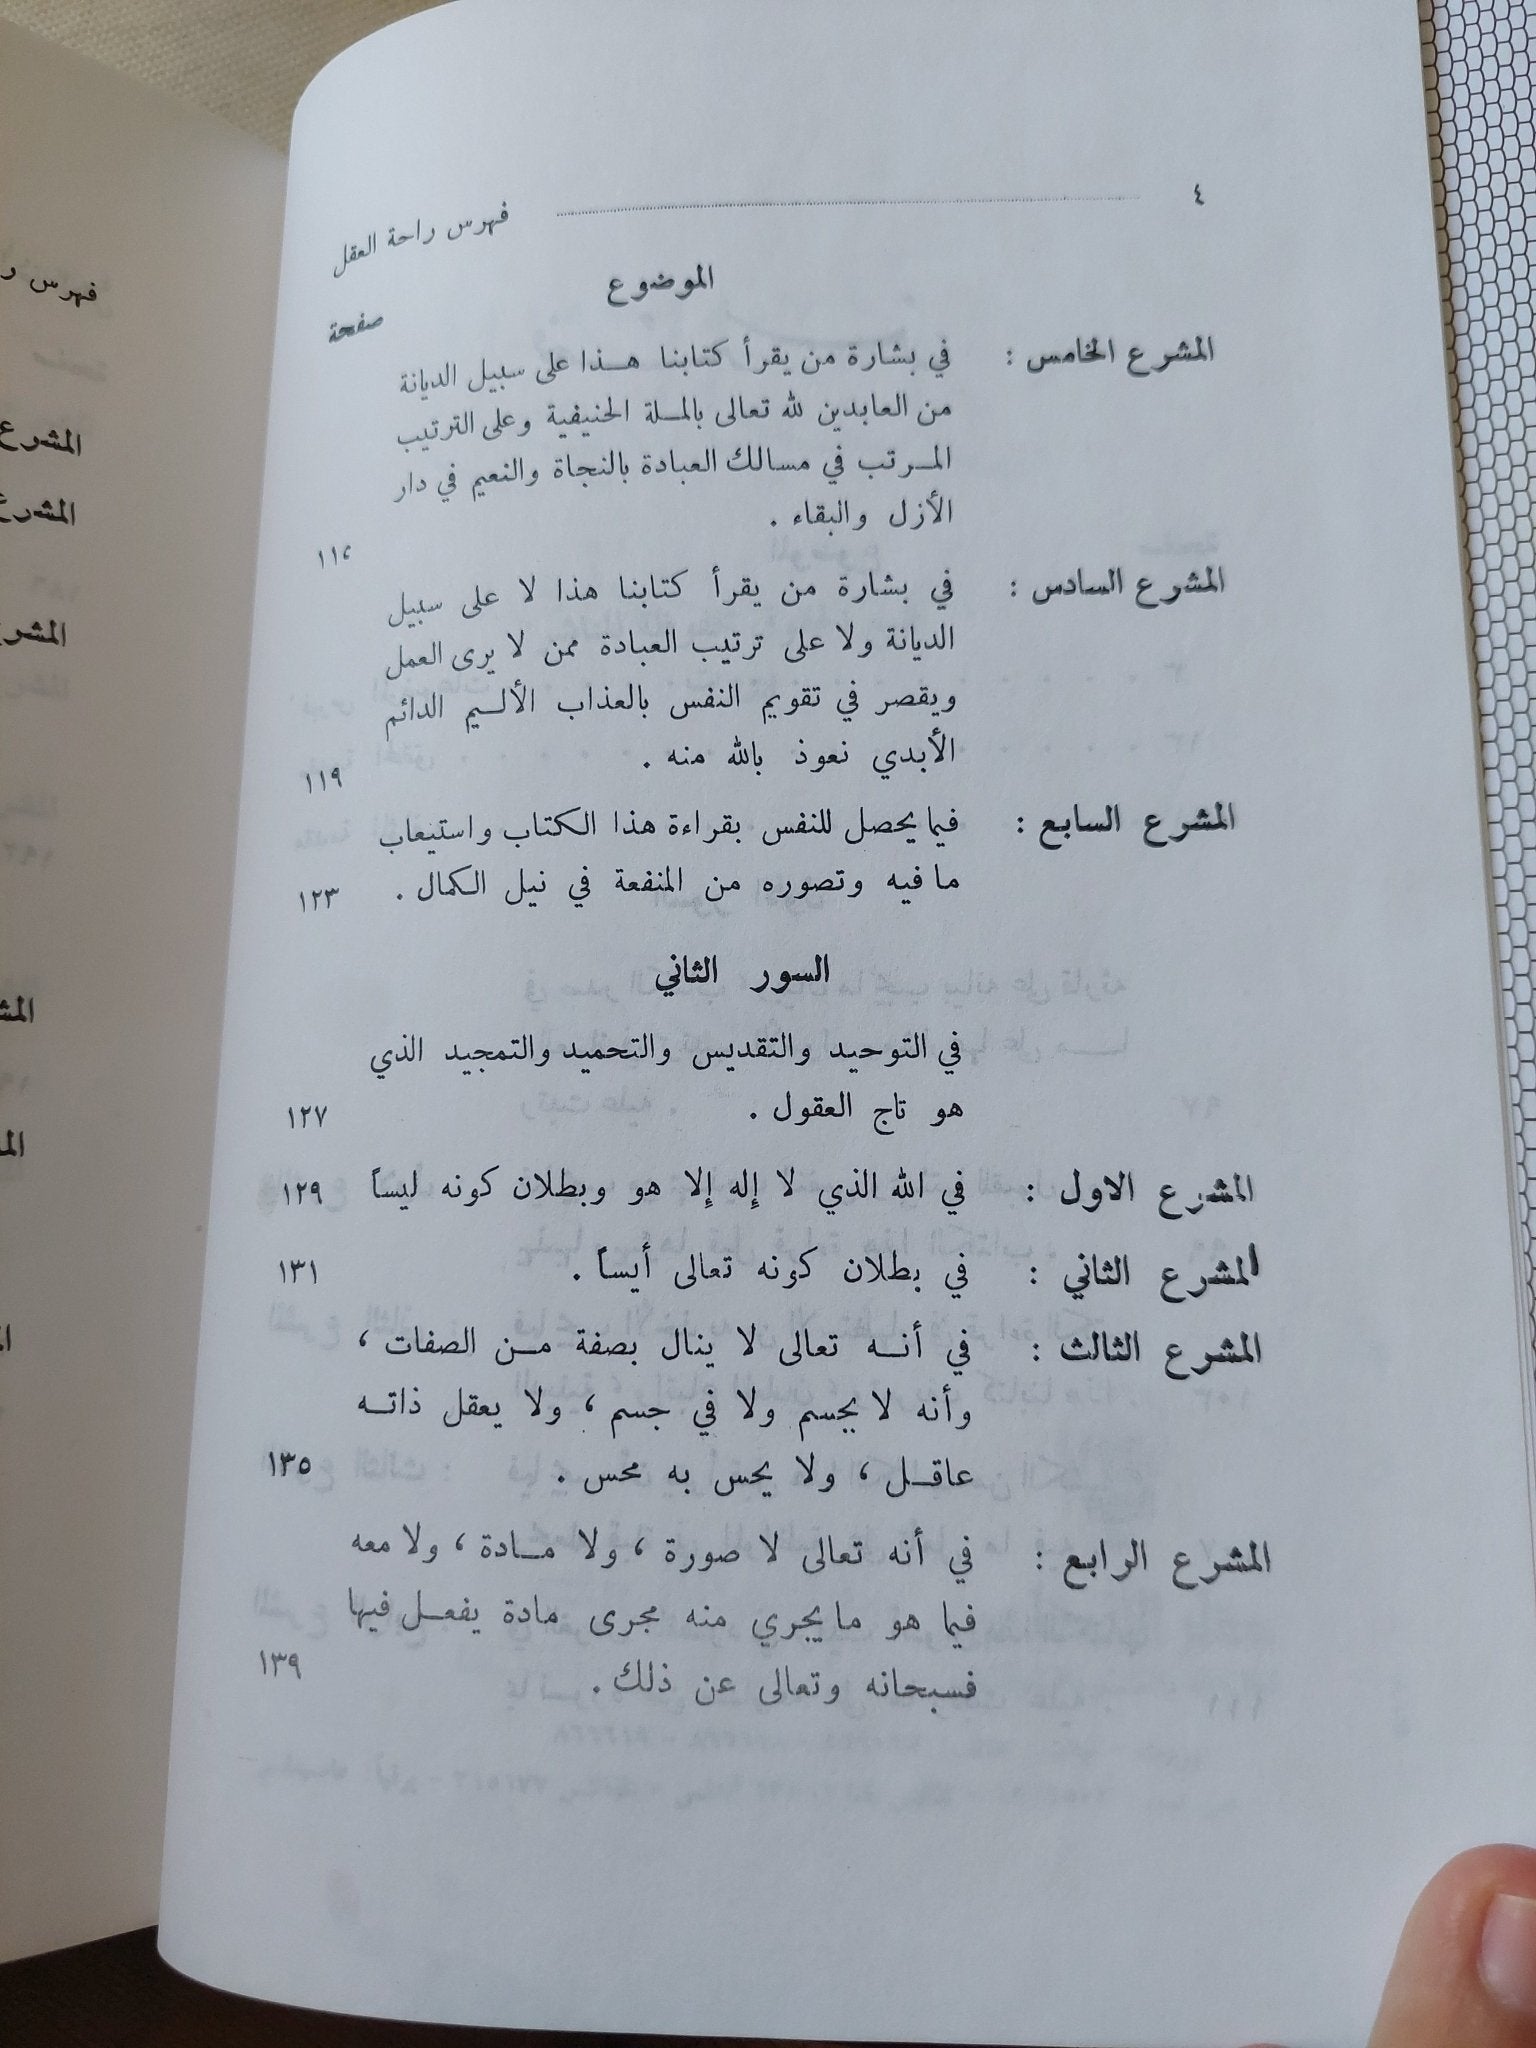 ٤ فهرس راحة العقل
الموضوع
صفحة
المشرع الخامس : في بشارة من يقرأ كتابنا هـذا على سبيل الديانة
من العابدين لله تعالى بالمـلة الحنيفية وعلى الترتيب
المـرتب في مسالك العبادة بالنجاة والنعيم في دار
الأزل والبقاء .
المشرع السادس : في بشارة من يقرأ كتابنا هذا لا على سبيل
الديانة ولا على ترتيب العبادة ممن لا يرى العمل
ويقصر في تقويم النفس بالعذاب الألـيم الدائم
الأبدي نعوذ بالله منه . ١١٩
المشرع السابع : فيما يحصل للنفس بقراءة هذا الكتاب واستيعاب
ما فيه وتصوره من المنفعة في نيل الكمال . ١٢٣
السور الثاني
في التوحيد والتقديس والتحميد والتمجيد الذي
هو تاج العقول . ١٢٧
المشرع الاول : في الله الذي لا إله إلا هو وبطلان كونه ليساً ١٢٩
المشرع الثاني : في بطلان كونه تعالى أيساً . ١٣١
المشرع الثالث : في أنـه تعالى لا ينال بصفة مـن الصفات ،
وأنه لا بجسم ولا في جسم ، ولا يعقل ذاتـه
عاقـل ، ولا يحس به محس . ١٣٥
المشرع الرابع : في أنه تعالى لا صورة ، ولا مـادة ، ولا معه
فيما هو ما يجري منه مجرى مادة يفعـل فيها
فسبحانه وتعالى عن ذلك . ١٣٩
فهرس
المشرع
المشرع
المشرع